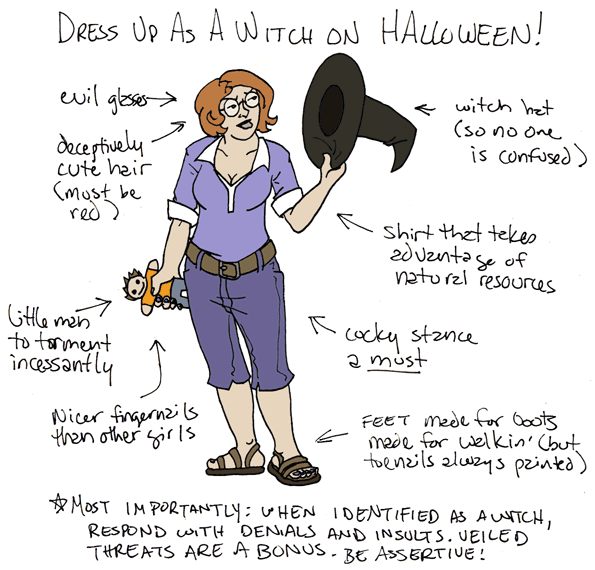 DRESS UP AS A WITCH ON HALLOWEEN!
evil glasses
deceptively
cute hair
(must be
red)
witch hat
(so no one
is confused)
shirt that takes
advantage of
natural resources
little man
to torment
incessantly
cocky stance
a must
Nicer fingernails
than other girls
FEET made for boots
made for walkin' (but
toenails always painted)
☆MOST IMPORTANTLY: WHEN IDENTIFIED AS A WITCH,
RESPOND WITH DENIALS AND INSULTS. VEILED
THREATS ARE A BONUS. BE ASSERTIVE!